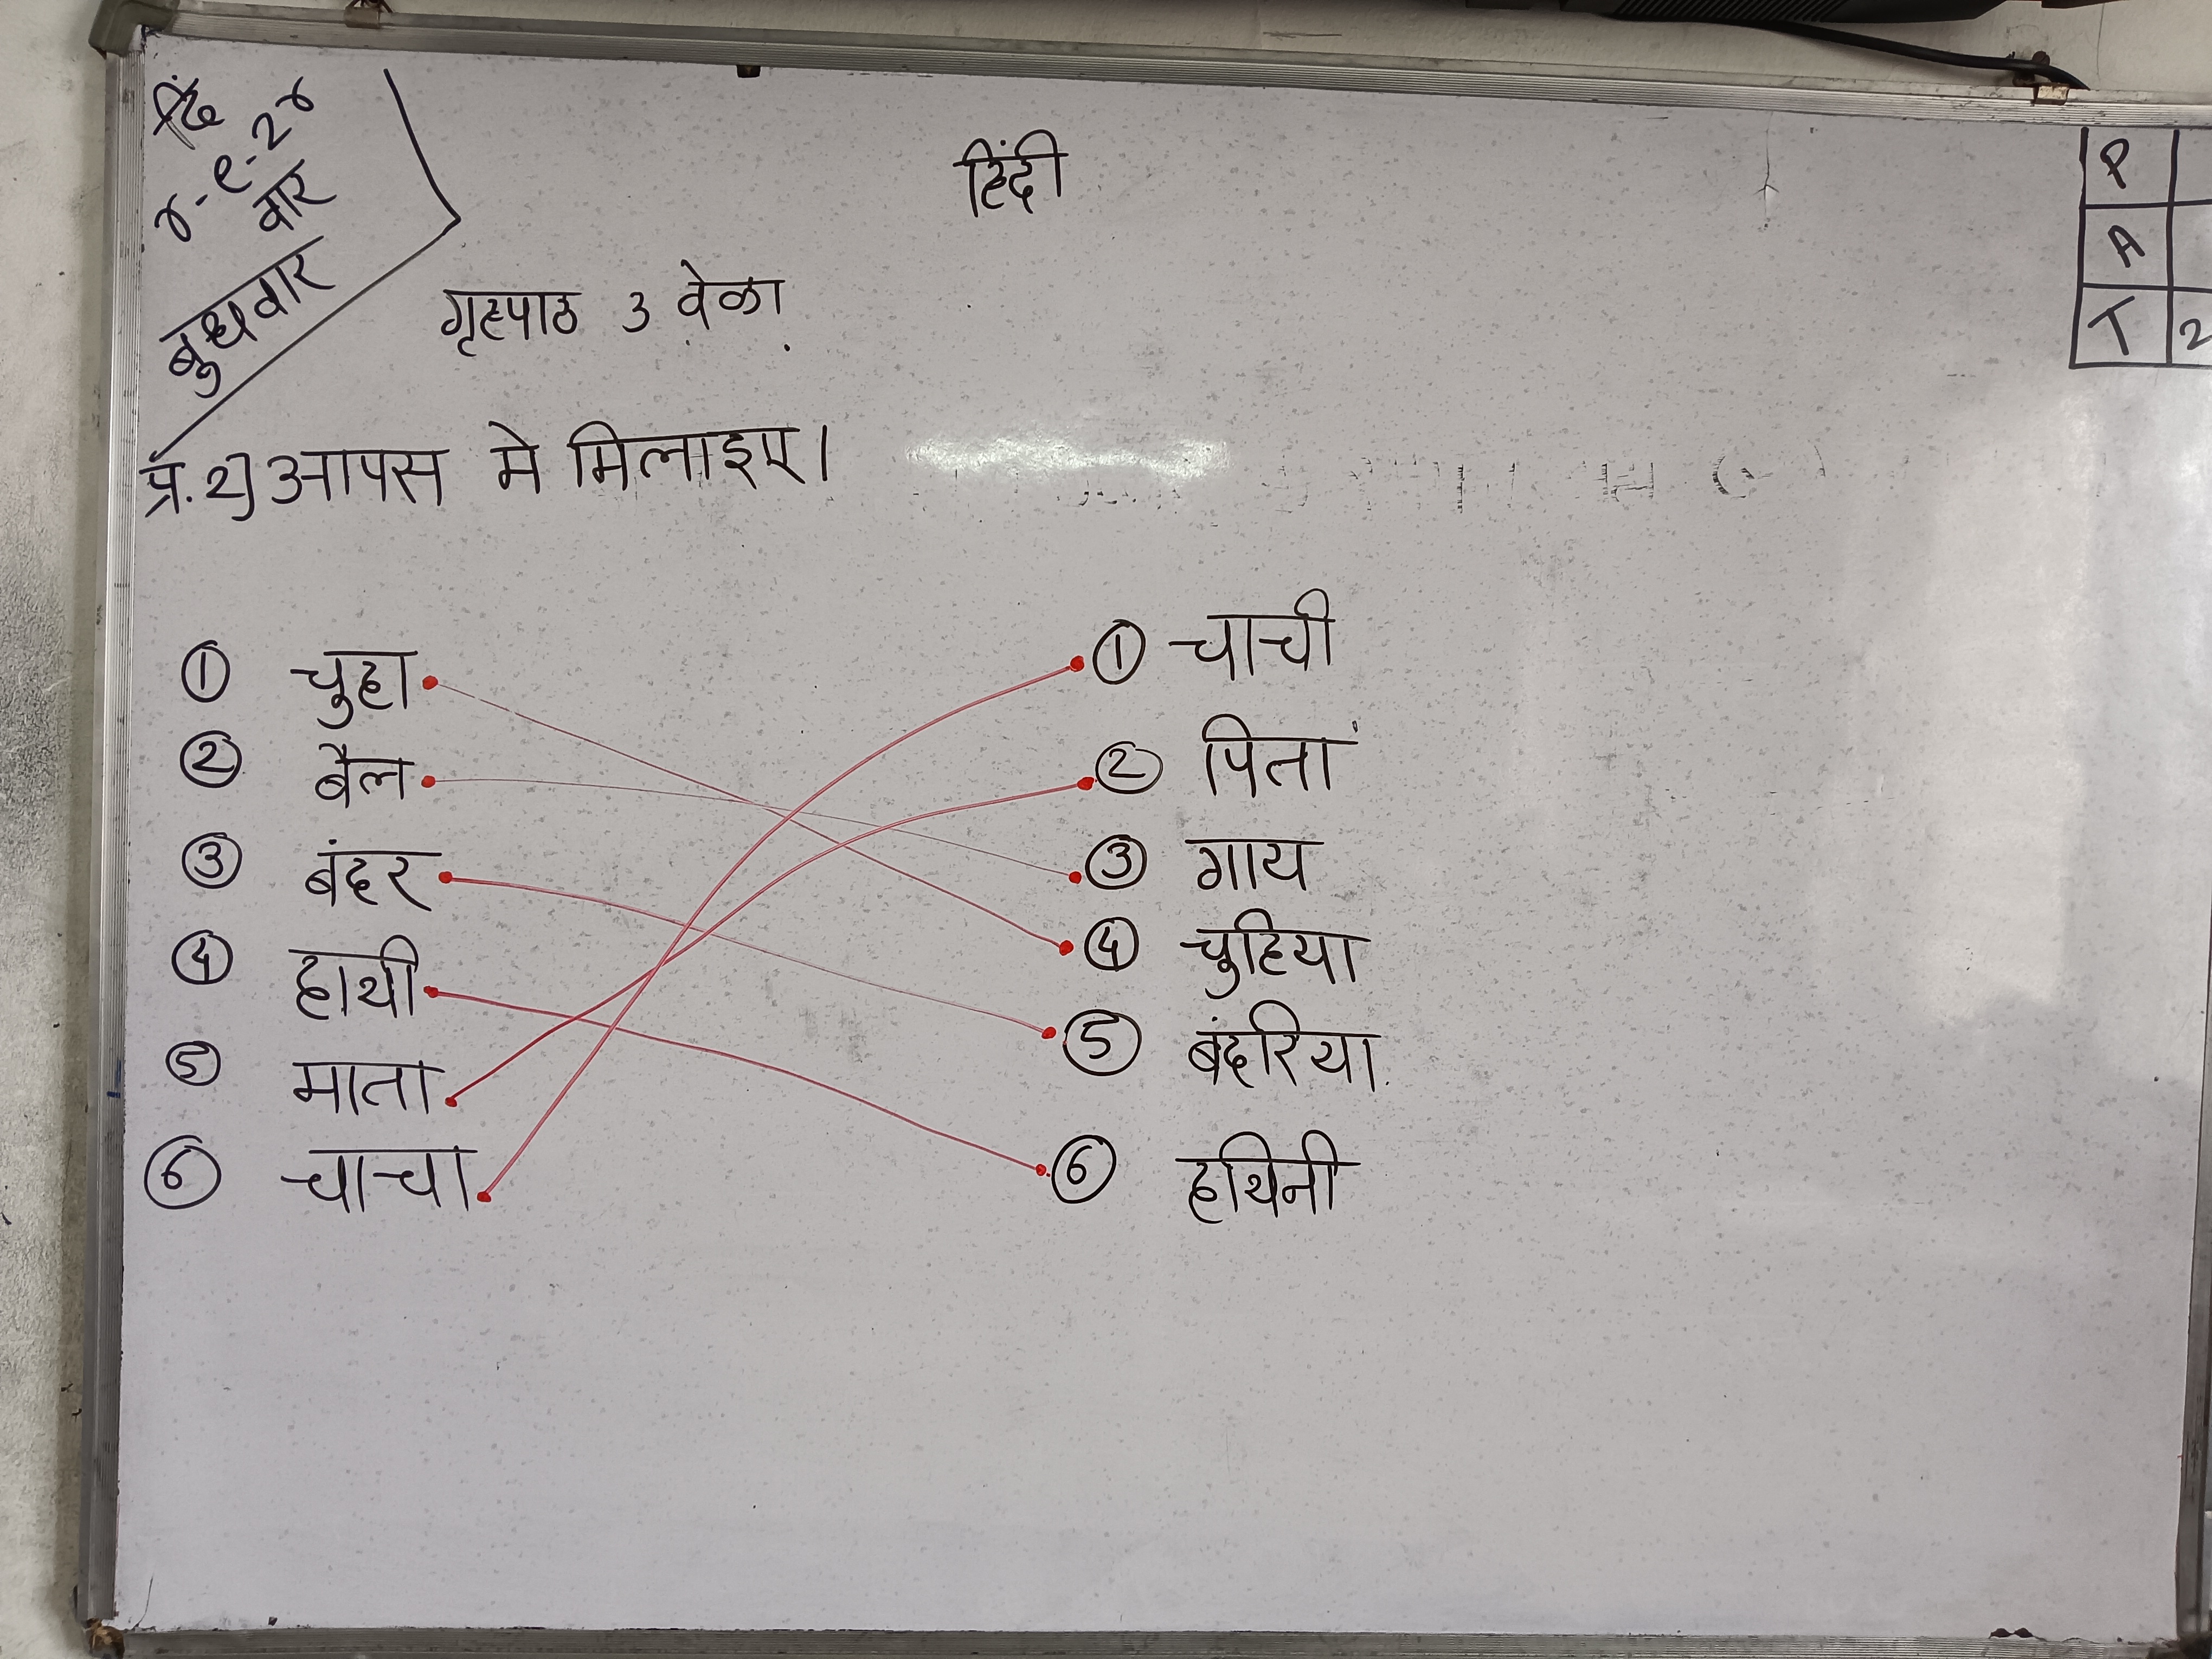 हिंदी
दि
४-९-२४
वार
बुधवार
गृहपाठ 3 वेळा
प्र.2] आपस मे मिलाइए।
① चुहा
② बैल
③ बंदर
④ हाथी
⑤ माता
⑥ चाचा
① चाची
② पिता
③ गाय
④ चुहिया
⑤ बंदरिया
⑥ हथिनी
P
A
T 2